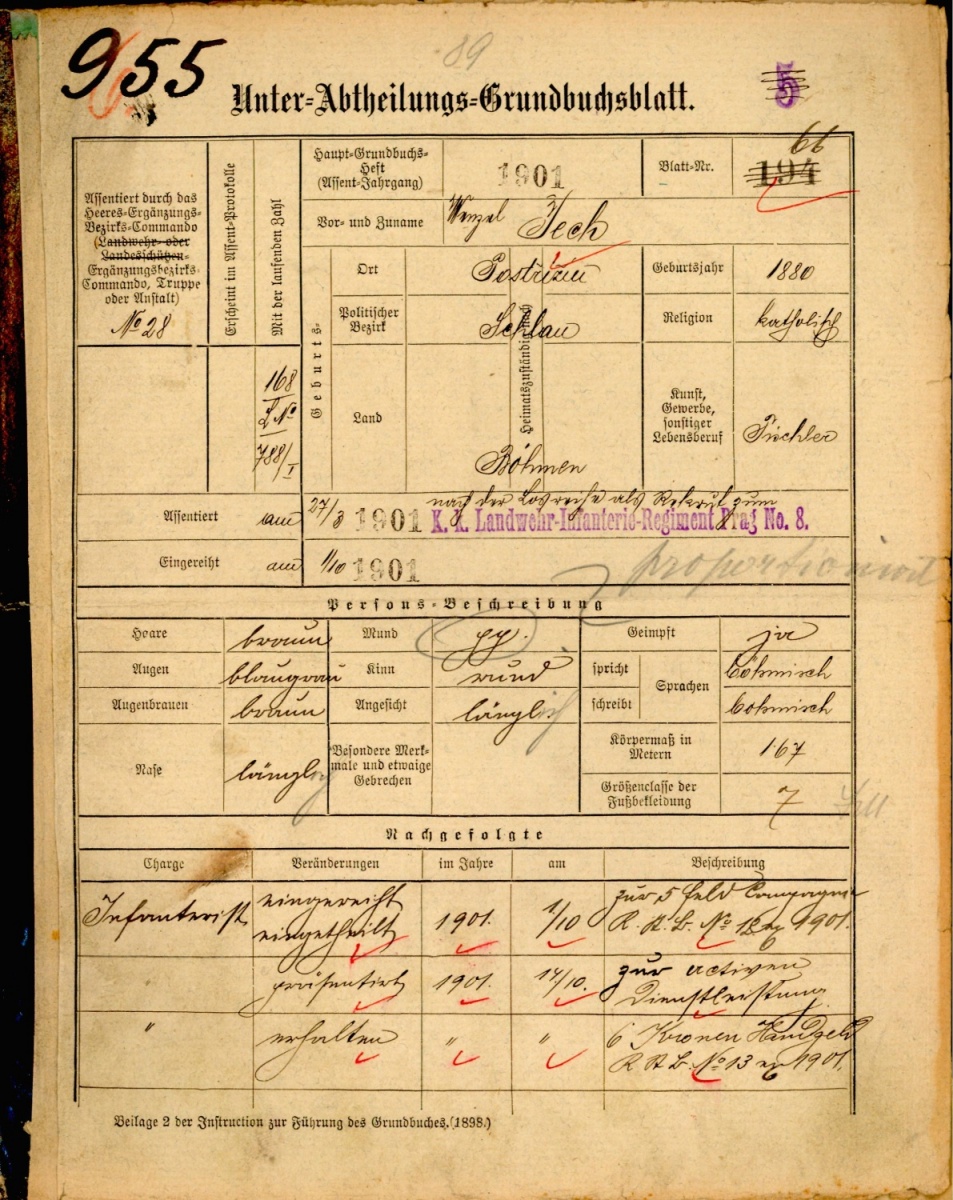 955
89
5
Unter-Abtheilungs-Grundbuchsblatt.
Assentiert durch das
Heeres-Ergänzungs-
Bezirks-Commando
(Landwehr- oder
Landesschützen-
Ergänzungsbezirks-
Commando, Truppe
oder Anstalt)
No 28
Erscheint im Assent-Protokolle
Mit der laufenden Zahl
168
L No
788/I
Haupt-Grundbuchs-
Heft
(Assent-Jahrgang)
1901
Blatt-Nr.
66
194
Vor- und Zuname
Wenzel Jech
Geburts-
Heimatszuständigkeit
Ort
Postrizin
Geburtsjahr
1880
Politischer
Bezirk
Schlau
Religion
katholisch
Land
Böhmen
Kunst,
Gewerbe,
sonstiger
Lebensberuf
Tischler
Assentiert
am 27/3 1901
nach der Losreihe als Rekrut zum
K. k. Landwehr-Infanterie-Regiment Prag No. 8.
Eingereiht
am 1/10 1901
proportionirt
Persons-Beschreibung
Haare
braun
Mund
pp.
Geimpft
ja
Augen
blaugrau
Kinn
rund
spricht
Sprachen
böhmisch
Augenbrauen
braun
Angesicht
länglich
schreibt
böhmisch
Nase
länglich
Besondere Merk-
male und etwaige
Gebrechen
Körpermaß in
Metern
167
Größenclasse der
Fußbekleidung
7
Nachgefolgte
Charge
Veränderungen
im Jahre
am
Beschreibung
Infanterist
eingereiht
eingetheilt
1901.
1/10
zur 5 Feld Compagnie
R. A. B. No 12 ex 1901.
präsentirt
1901.
14/10.
zur activen
Dienstleistung
"
erhalten
"
"
6 Kronen Handgeld
R. A. B. No 13 ex 1901.
Beilage 2 der Instruction zur Führung des Grundbuches. (1898.)